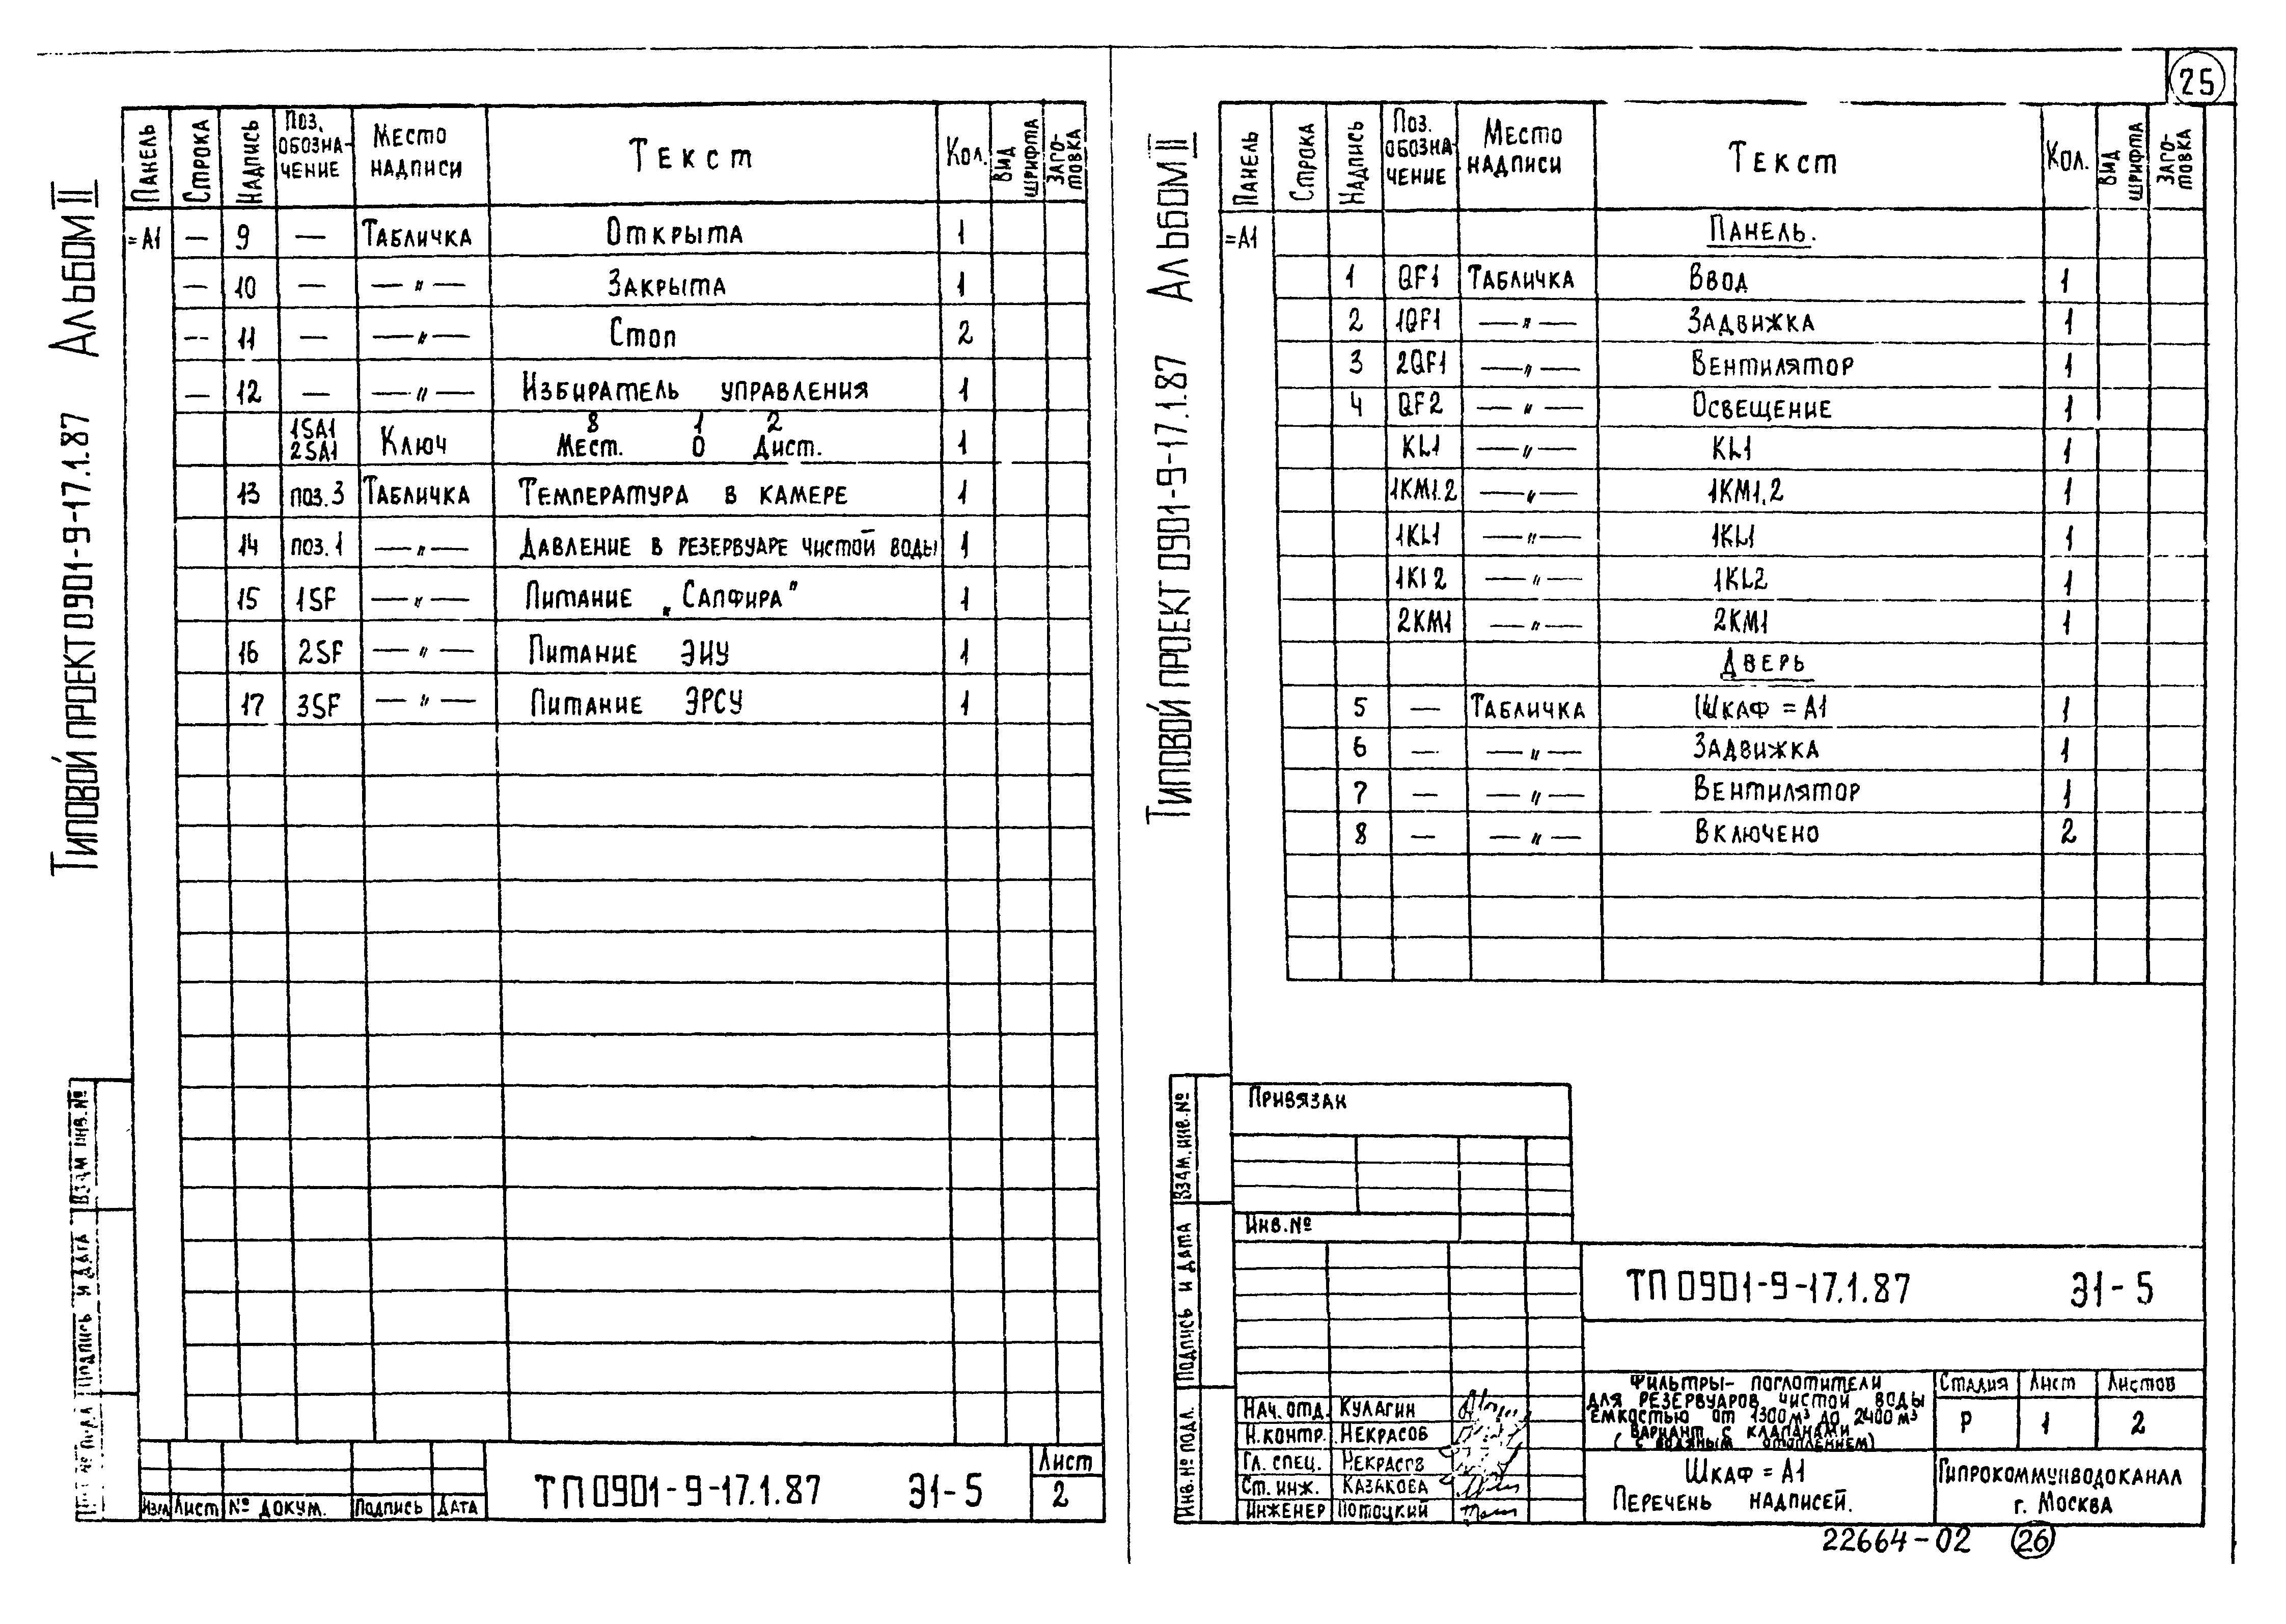 25
Альбом II
Типовой проект 0901-9-17.1.87
Панель Строка Надпись Поз. обозначение Место надписи Текст Кол. Вид шрифта Заготовка
=А1 — 9 — Табличка Открыта 1
— 10 — —〃— Закрыта 1
— 11 — —〃— Стоп 2
— 12 — —〃— Избиратель управления 1
8 1 2
1SA1 2SA1 Ключ Мест. 0 Дист. 1
13 поз. 3 Табличка Температура в камере 1
14 поз. 1 —〃— Давление в резервуаре чистой воды 1
15 1SF —〃— Питание „Сапфира" 1
16 2SF —〃— Питание ЭИУ 1
17 3SF —〃— Питание ЭРСУ 1
Взам инв. №
Подпись и дата
Изм Лист № докум. Подпись Дата
ТП 0901-9-17.1.87 Э1-5
Лист
2
Альбом II
Типовой проект 0901-9-17.1.87
Панель Строка Надпись Поз. обозначение Место надписи Текст Кол. Вид шрифта Заготовка
=А1 Панель.
1 QF1 Табличка Ввод 1
2 1QF1 —〃— Задвижка 1
3 2QF1 —〃— Вентилятор 1
4 QF2 —〃— Освещение 1
KL1 —〃— KL1 1
1KM1.2 —〃— 1KM1.2 1
1KL1 —〃— 1KL1 1
1KL2 —〃— 1KL2 1
2KM1 —〃— 2KM1 1
Дверь
5 — Табличка Шкаф =А1 1
6 — —〃— Задвижка 1
7 — —〃— Вентилятор 1
8 — —〃— Включено 2
Взам. инв. №
Подпись и дата
Инв. № подл.
Привязан
Инв. №
ТП 0901-9-17.1.87 Э1-5
Нач. отд. Кулагин
Н. контр. Некрасов
Гл. спец. Некрасов
Ст. инж. Казакова
Инженер Потоцкий
Фильтры-поглотители
для резервуаров чистой воды
емкостью от 1300 м³ до 2400 м³
вариант с клапанами
(с водяным отоплением)
Стадия Лист Листов
Р 1 2
Шкаф =А1
Перечень надписей.
Гипрокоммунводоканал
г. Москва
22664-02 26